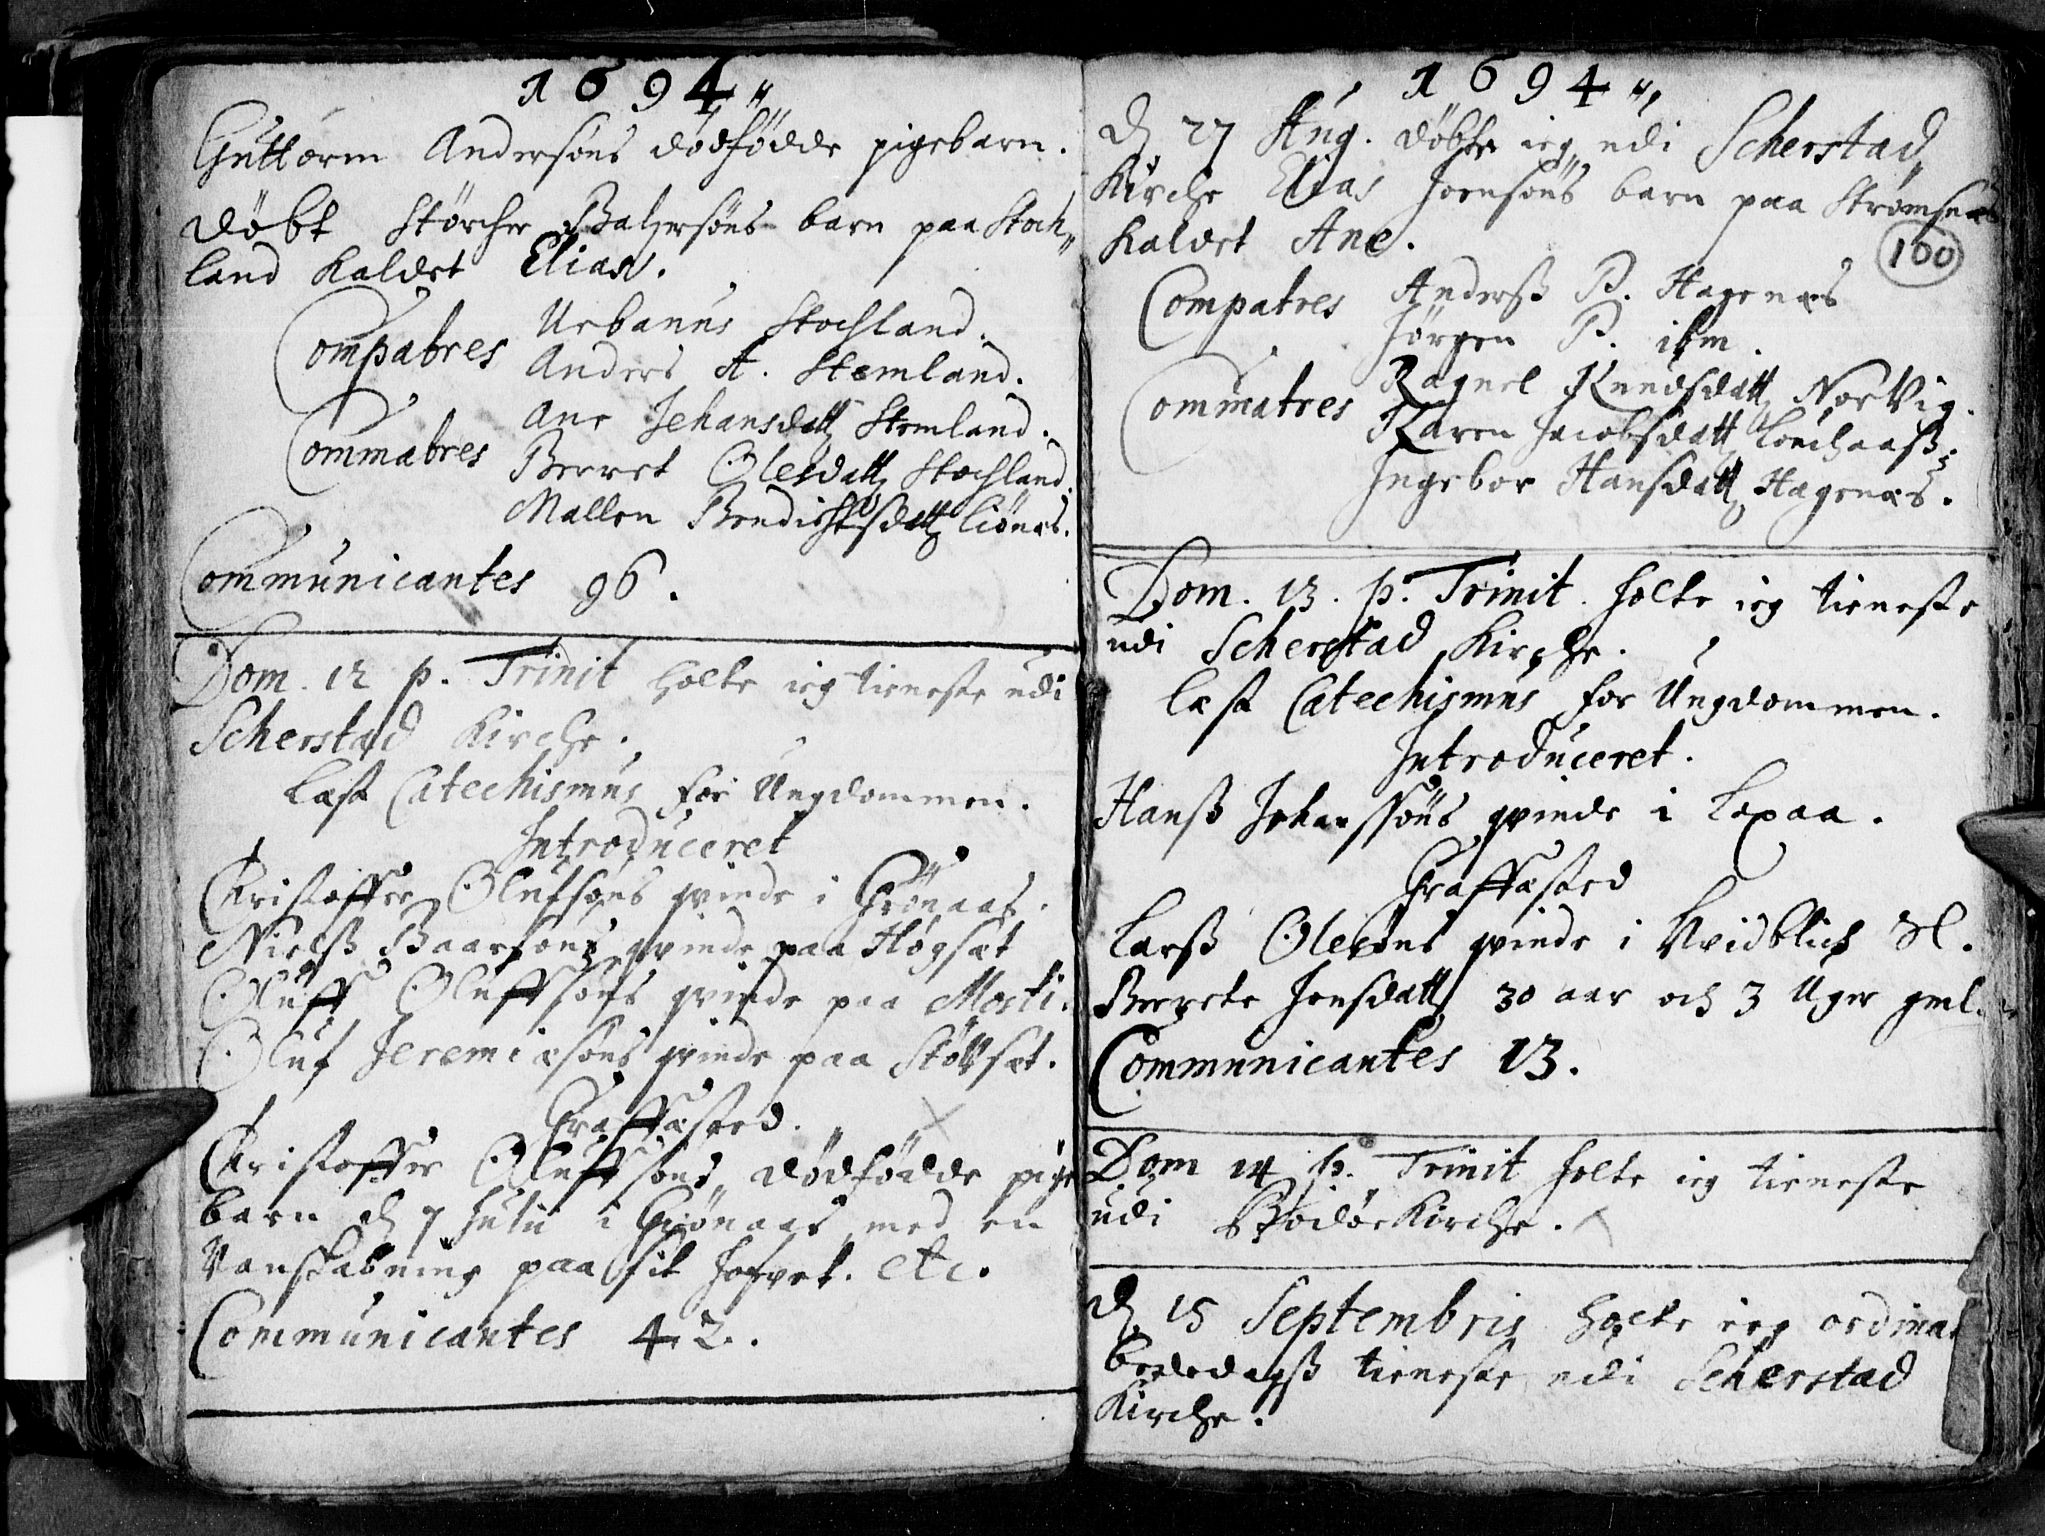 1694
Guttorm Andersøns dødfødde pigebarn.
døbt Størcher Baltzersøns barn paa Stoch„
land kaldet Elias.
Compabres Urbanus Stochland.
Anders A. Stemland.
Commabres Ane Jehansdatt Stemland.
Berret Olesdatt Stochland.
Mallen Bendichtsdatt Liønæs.
Communicantes 96.
Dom. 12 p. Trinit holte ieg tieneste udi
Scherstad Kirche.
Læst Catechismus for Ungdommen.
Introduceret
Christoffer Olufsøns qvinde i Grønaas.
Nielß Baarsøns qvinde paa Høgsæt
Oluff Oluffsøns qvinde paa Morti.
Oluf Jeremiæsøns qvinde paa Støttsæt.
Graffæsted.
Christoffer Oluffsøns dødfødde pige
barn d 7 Julii i Grønaas med en
Vanskabning paa sit hofvet. etc.
Communicantes 42.
1694
d 27 Aug. døbte ieg udi Scherstad
Kirche Elias Joensøns barn paa Strømsnæs
kaldet Ane.
100
Compatres Anderß P. Hagenæs
Jørgen P. ibm.
Commatres Ragnel Knudsdatt Norvig.
Karen Jacobsdatt Løuchaaß:
Ingebor Hansdatt Hagenæs.
Dom. 13. p. Trinit. holte ieg tieneste
udi Scherstad Kirche.
Læst Catechismus for Ungdommen.
Introduceret.
Hanß Johanssøns qvinde i Lexaa.
Graffæsted
Larß Olesøns qvinde i Kvidblich
Berrete Jensdatt 30 aar och 3 Uger gml.
Communicantes 13.
Dom 14 p. Trinit holte ieg tieneste
udi Bodøe Kirche.
d 15 Septembris holte ieg ordinar
bededagß tieneste udi Scherstad
Kirche.